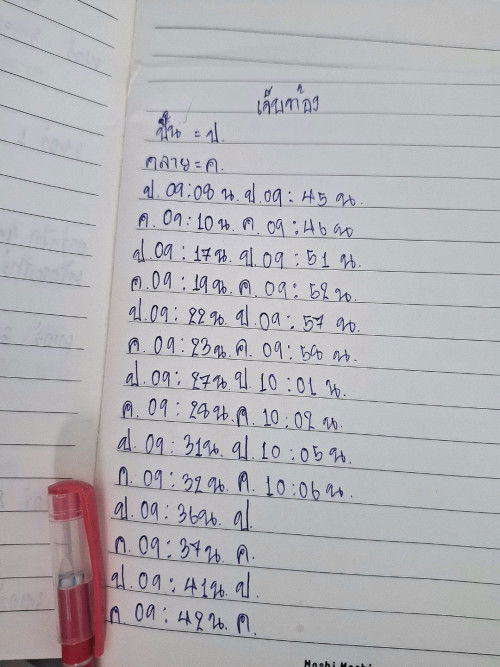 เจ็บท้อง
ปั้น = ป.
คลาย = ค.
ป. 09:08 น. ป. 09:45 น.
ค. 09:10 น. ค. 09:46 น
ป. 09:17 น. ป. 09:51 น.
ค. 09:19 น. ค. 09:52 น.
ป. 09:22 น. ป. 09:57 น.
ค. 09:23 น. ค. 09:58 น.
ป. 09:27 น. ป. 10:01 น.
ค. 09:28 น. ค. 10:02 น.
ป. 09:31 น. ป. 10:05 น.
ค. 09:32 น. ค. 10:06 น.
ป. 09:36 น. ป.
ค. 09:37 น. ค.
ป. 09:41 น. ป.
ค. 09:42 น. ค.